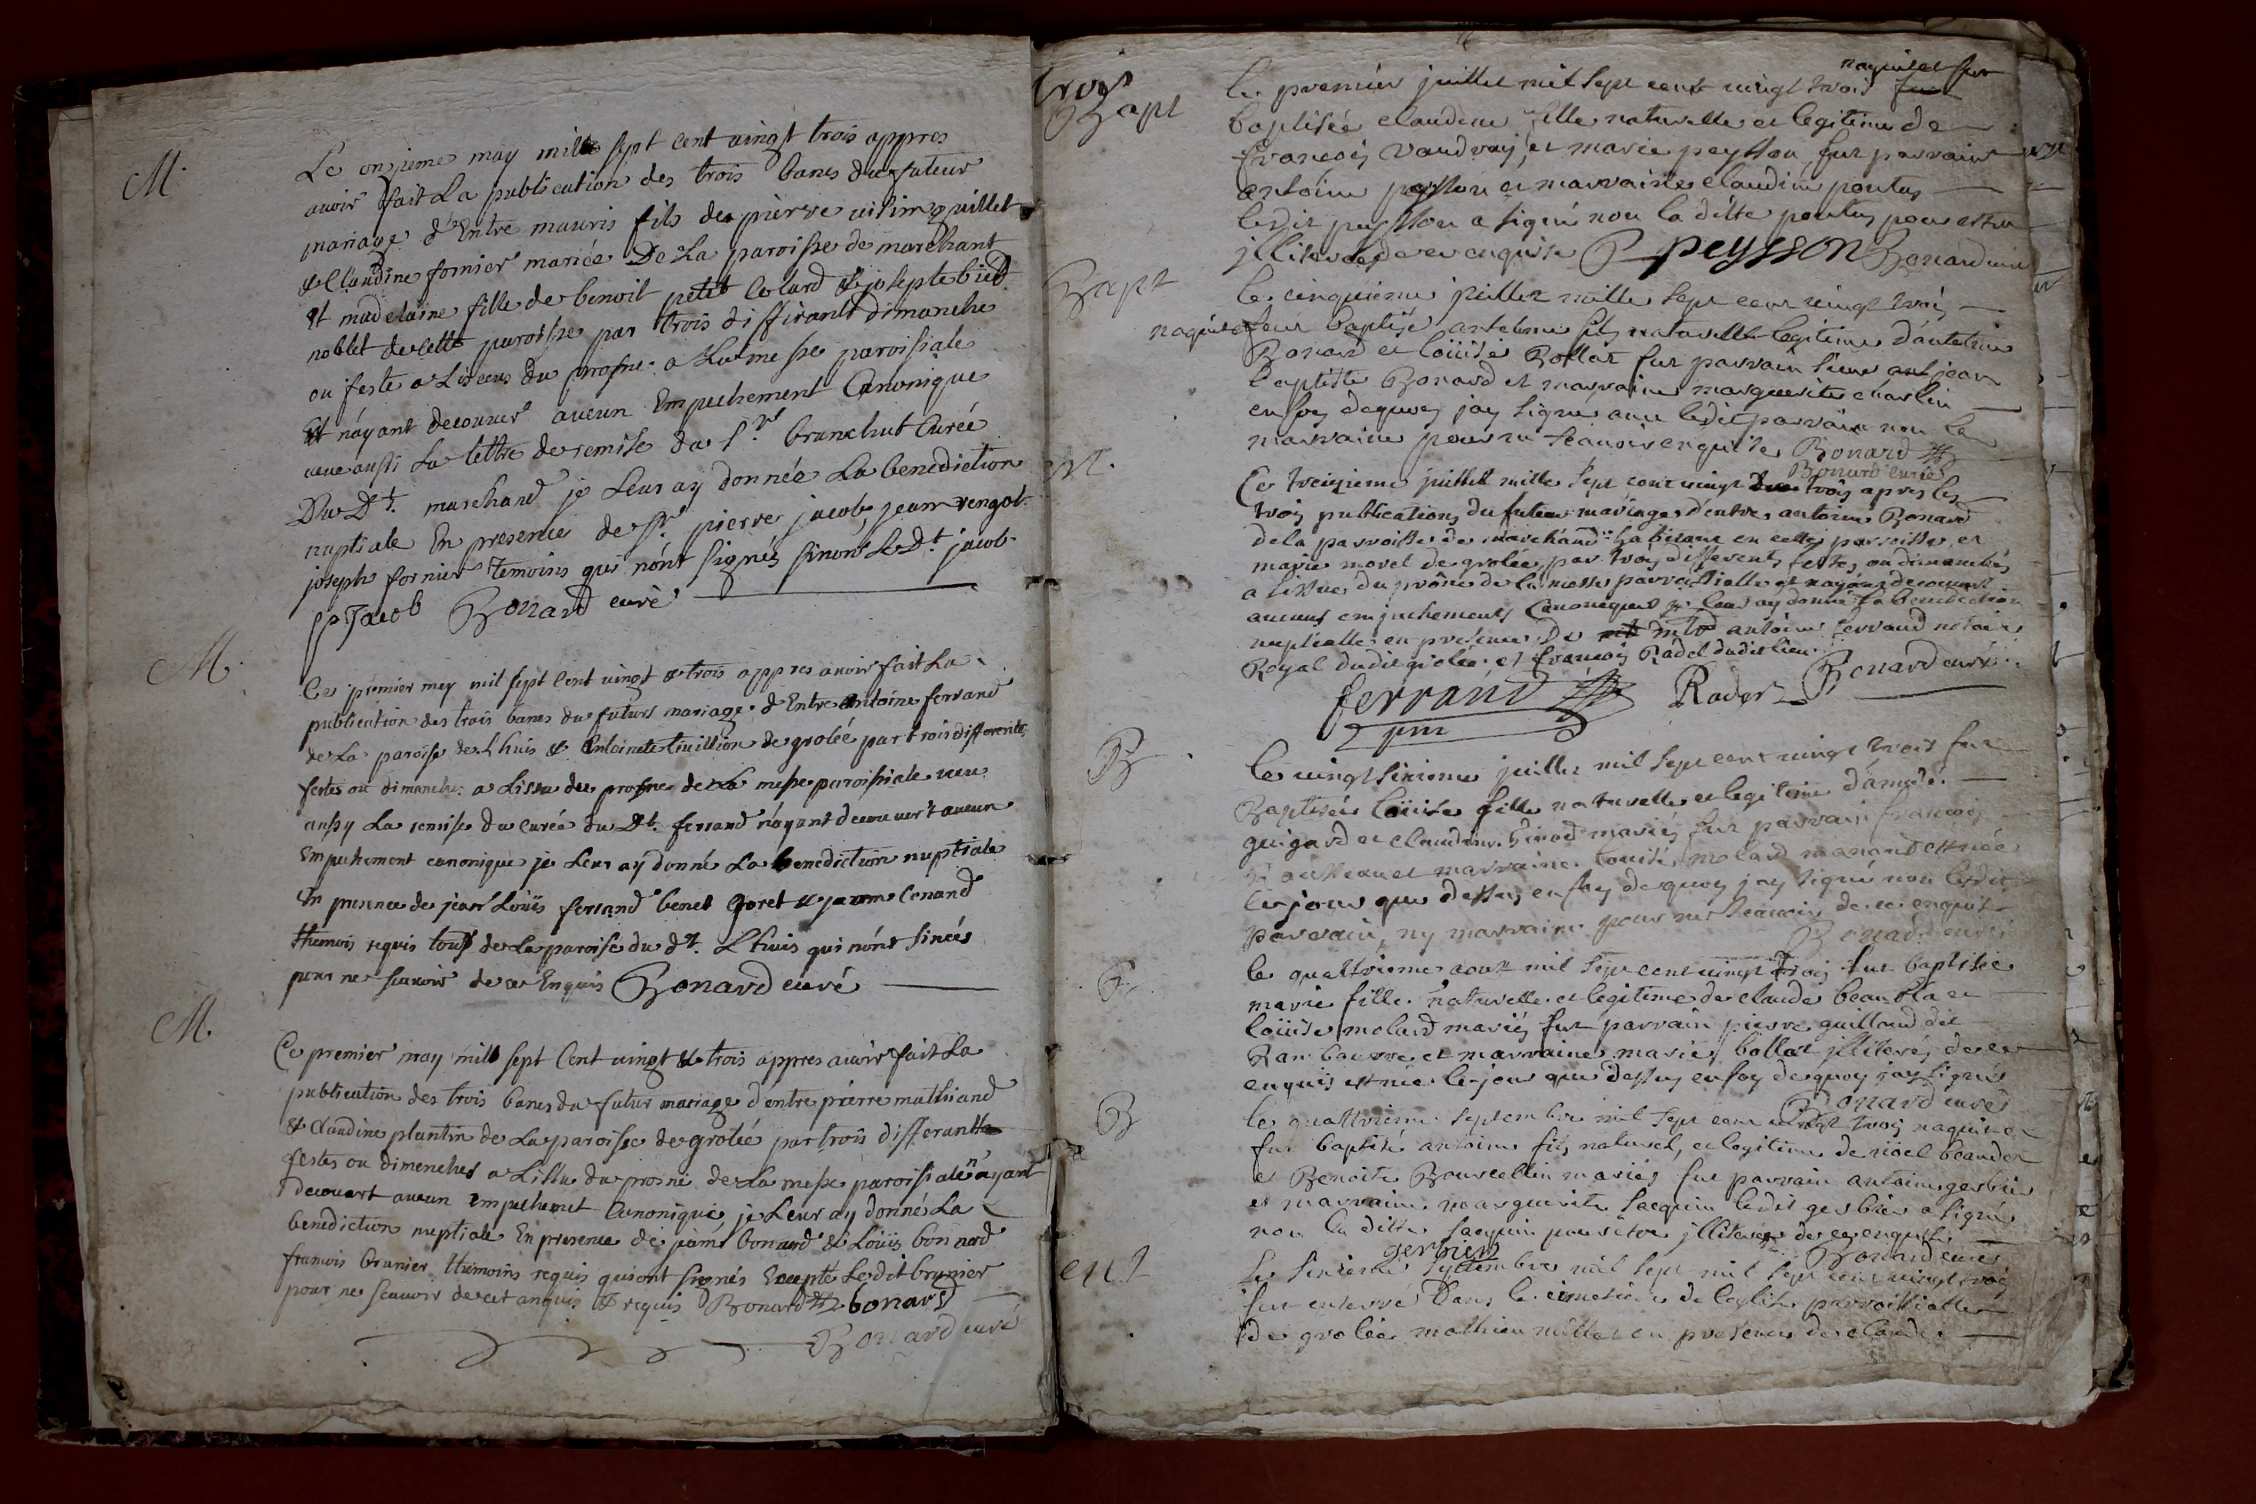 M.
Le onzieme may mille sept cent vingt trois appres
avoir fait La publication des trois bancs du futeur
mariage d'Entre mauris fils de pierre quillet
& Claudine fornier mariée De La paroisse de marchant
Et madelaine fille de benoit petit Colard & josepte
noblet de cette paroisse par trois diffirants dimanche
ou feste a Lissue du prosne a La messe paroissiale
Et n'ayant decouver aucun Empechement Canonique
veue aussi La lettre de remise du Sr. brunchut Curée
Du Dt. marchand je Leur ay donnée La benediction
nuptiale En presence de Sr. pierre jacob, jean rengot
joseph fornier temoins qui n'ont signés sinon Le Dt. jacob
P Jacob Bonard curé
M.
Ce premier mey mil sept Cent vingt & trois appres avoir fait La
publication des trois bancs du futurs mariage d'Entre Antoine ferrand
de La paroise de Lhuis & Antoinete tuillion de grolée par trois differente
festes ou dimanche a Lissu du prosne de La messe paroissiale veu
aussy La remise du curée du Dt. ferrand n'ayant decouvert aucun
Empechement canonique je Leur ay donné La benediction nuptiale
En presence de jean Louis ferrand benet goret & jaeme Cenand
themois requis tous de La paroise du dt. Lhuis qui n'ont sinés
pour ne scavoir de ce Enquis Bonard curé
M.
Ce premier may mill sept Cent vingt & trois appres avoir fait La
publication des trois bancs du futur mariage d'entre pierre mathiand
& Claudine plantin de La paroisse de grolée par trois differantte
festes ou dimenches a Lissu du prosne de La messe paroissiale n'ayant
decouvert aucun empechemet Canonique je Leur ay donné La
benediction nuptiale En presence de jamé bonard & Louis bonnard
francois brunier themoins requis qui ont signés Excepté Ledit brunier
pour ne scavoir de cet anquis & requis Bonard bonard
Bonard curé
trois
Bapt
le premier juillet mil sept cent vingt trois naquit et fut
baptisée claudine fille naturelle et legitime de
francois vaudray et marie peysson fut parrain
antoine peysson et marraine claudine pontus
ledit peysson a signé non la ditte pontus pour estre
illiterée de ce enquise P peysson Bonard curé
Bapt
le cinquieme juillet mille sept cent vingt trois
naquit et fut baptisé antelme fils naturelle legitime d'antelme
Bonard et loüise Bollat fut parrain sieur jean
baptiste Bonard et marraine marguerite charlin
en foy dequoy jay signé avec ledit parrain non la
marraine pour ne scavoir enquise Bonard
Bonard curé
M.
Ce treizieme juillet mille sept cent vingt trois apres les
trois publications du futur mariage d'entre antoine Bonard
de la parroisse de marchand habitant en cette parroisse et
marie morel de grolée par trois differents festes ou dimanches
a lissue du prône de la messe parroissialle et nayant decouvert
aucuns empechements Canoniques je leur ay donné la benediction
nuptialle en presence De mtre antoine ferrand notaire
Royal dudit grolée et francois Radel dudit lieu
ferrand Rader Bonard curé
pnt
B
le vingt sixieme juillet mil sept cent vingt trois fut
Baptisée loüise fille naturelle et legitime d'amedé
guigard et claudine mariés fut parrain francois
et marraine louise molard et née
le jour que dessus en foy de quoy jay signé non ledit
parrain, ny marraine pour ne scavoir de ce enquis
Bonard curé
B
le quattrieme aout mil sept cent vingt trois fut baptisée
marie fille naturelle et legitime de claude beau et
loüise molard mariés fut parrain pierre guilland dit
et marraine marie bollat illiterés de ce
enquis et née le jour que dessus en foy de quoy jay signé
Bonard curé
B
le quattrieme septembre mil sept cent vingt trois naquit et
fut baptisé antoine fils naturel, et legitime de nöel beaudet
et Benoite Bourcellin mariés fut parrain antoine gerbier
et marraine marguerite Jacquin ledit gerbier a signé
non la ditte Jacquin pour etre illiterée de ce enquise
gerbier Bonard curé
ent
Le sixieme septembre mil sept mil sept cent vingt trois
fut enterré Dans le cimetiere de leglise parroissialle
de grolée mathieu millet en presence de claude